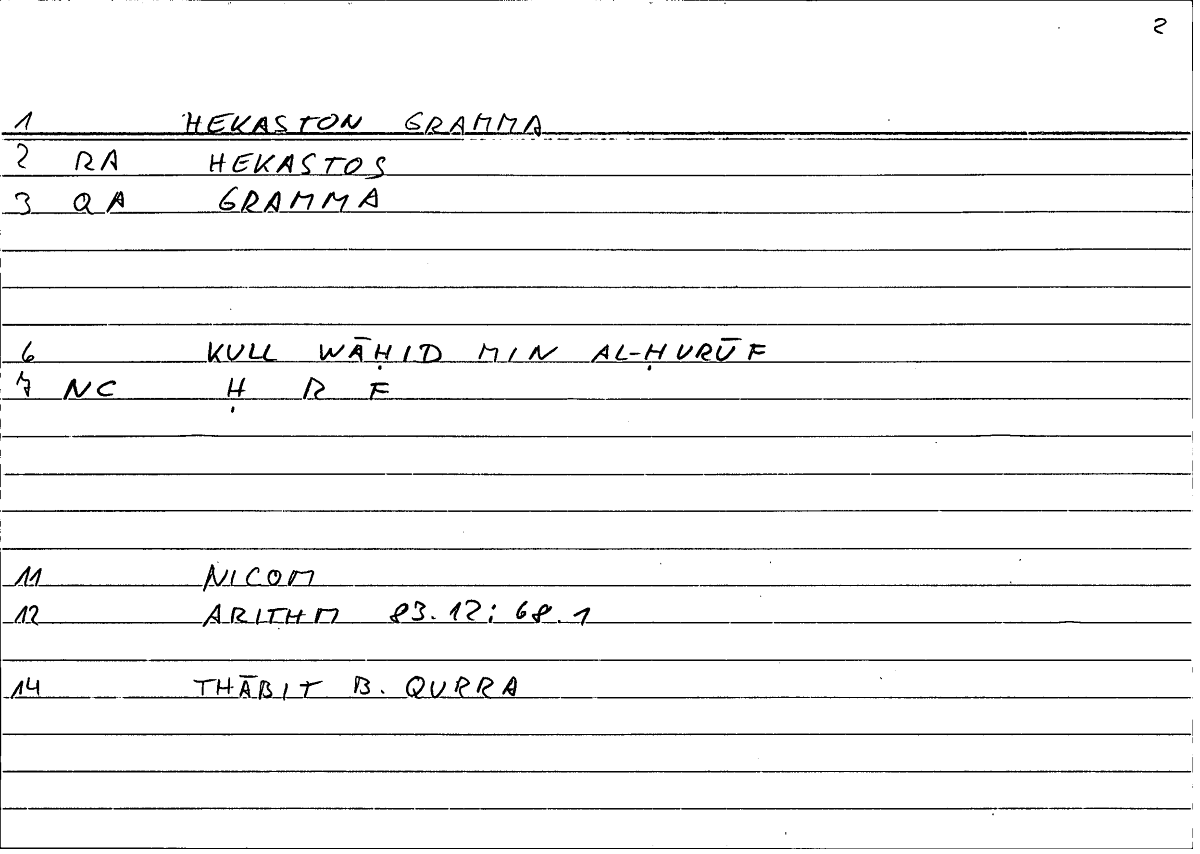 2
1 HEKASTON GRAMMA
2 RA HEKASTOS
3 QA GRAMMA
6 KULL WĀḤID MIN AL-ḤURŪF
7 NC Ḥ R F
11 NICOM
12 ARITHM 83.12; 68.1
14 THĀBIT B. QURRA